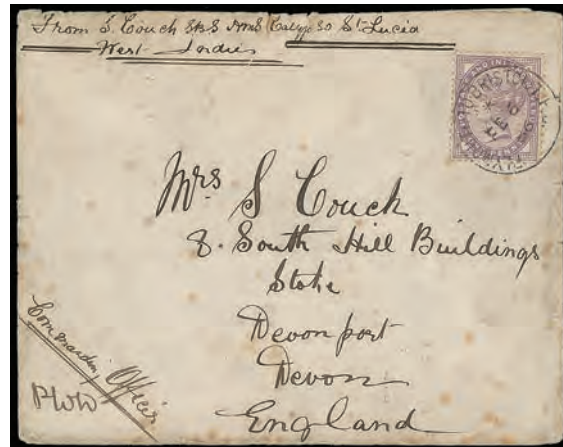 From S. Couch HMS Calypso St Lucia
West Indies
Mrs S Couch
8. South Hill Buildings
Stoke
Devonport
Devon
England
Commandin Officer